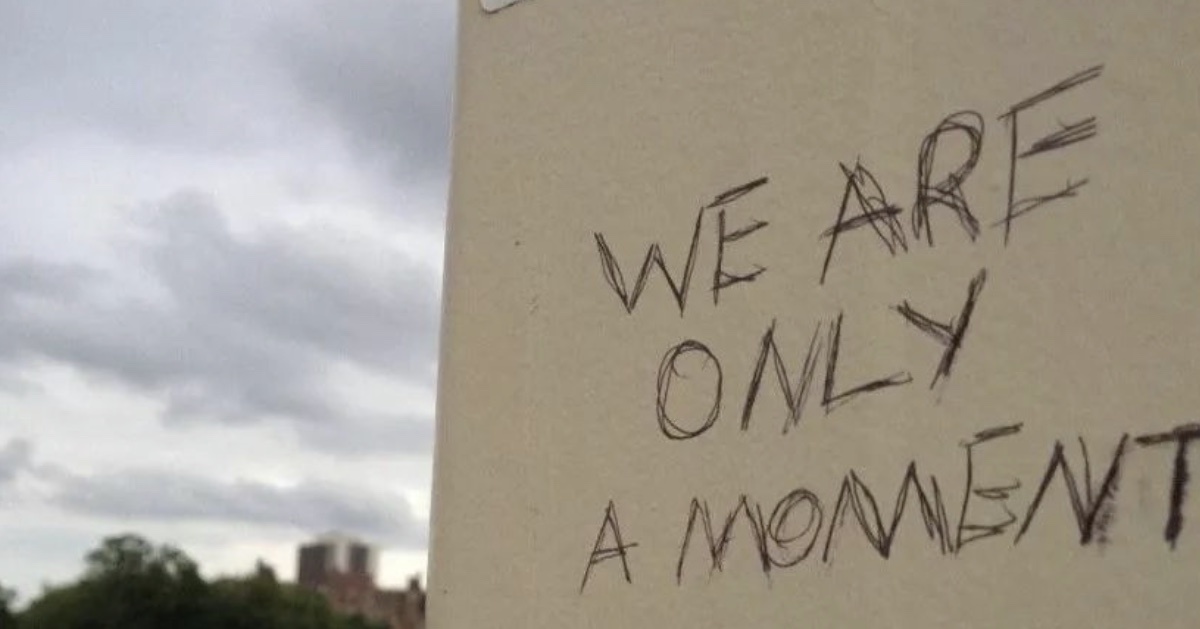 WE ARE
ONLY
A MOMENT